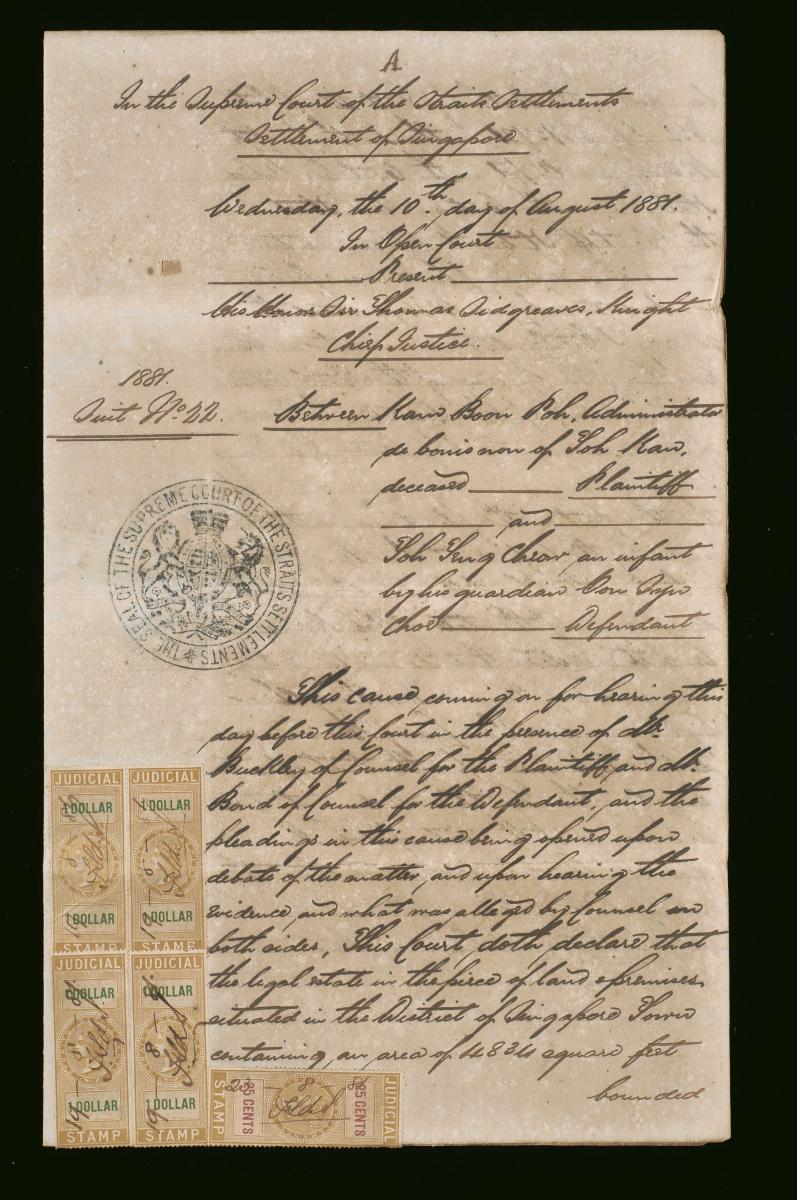 A
In the Supreme Court of the Straits Settlements
Settlement of Singapore
Wednesday, the 10th day of August 1881.
In Open Court
Present
His Honor Sir Thomas Sidgreaves, Knight
Chief Justice.
1881.
Suit No 22.
Between Kam Boon Poh, Administrator
de bonis non of Toh Kaw,
deceased Plaintiff
and
Toh Teng Cheow, an infant
by his guardian
Choe Defendant
THE SEAL OF THE SUPREME COURT OF THE STRAITS SETTLEMENTS
This cause coming on for hearing this
day before this Court in the presence of Mr.
Buckley of Counsel for the Plaintiff, and Mr.
Bond of Counsel for the Defendant, and the
pleadings in this cause being opened upon
debate of the matter, and upon hearing the
evidence, and what was alleged by Counsel on
both sides, This Court doth declare that
the legal estate in the piece of land & premises
situated in the District of Singapore Town
containing an area of 4834 square feet
bounded
JUDICIAL JUDICIAL
1 DOLLAR 1 DOLLAR
1 DOLLAR 1 DOLLAR
STAMP STAMP
JUDICIAL JUDICIAL
1 DOLLAR 1 DOLLAR
1 DOLLAR 1 DOLLAR
STAMP STAMP
STAMP 25 CENTS 25 CENTS JUDICIAL